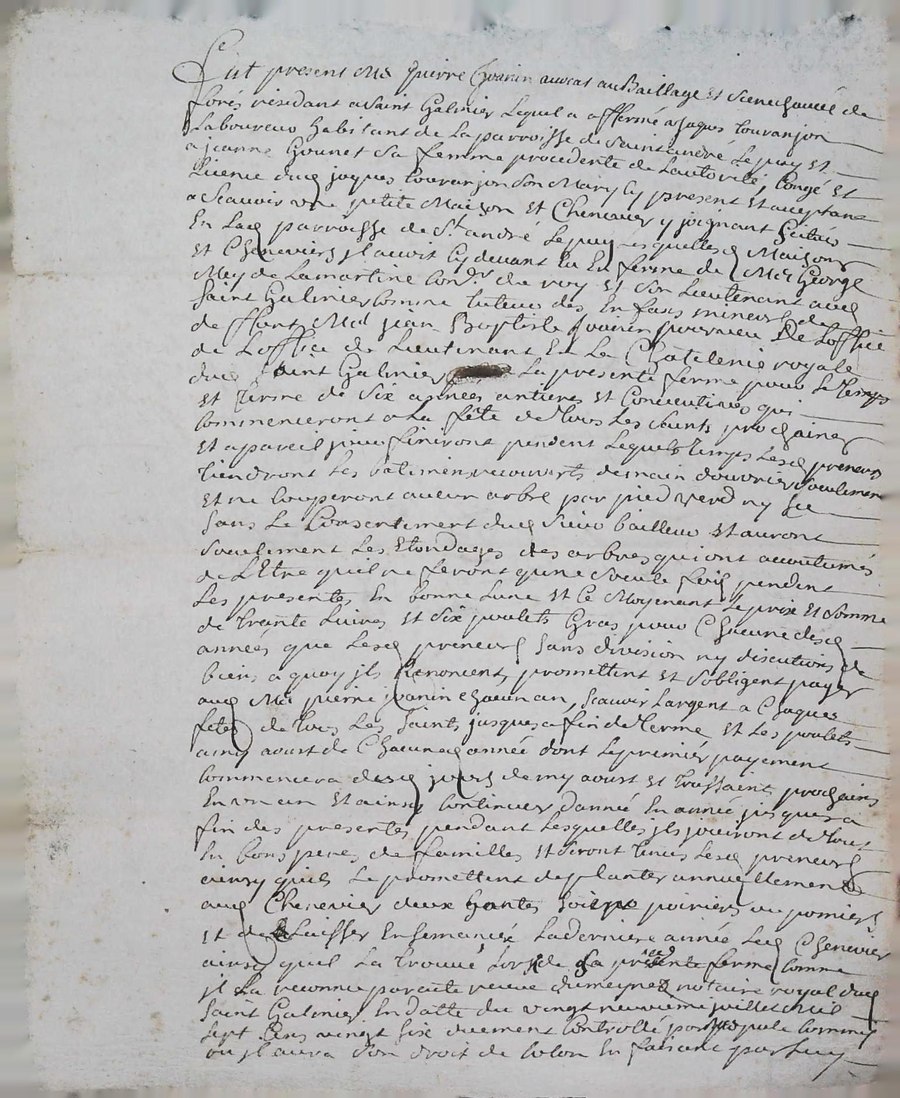 Fut present Me pierre Jvanin avocat au Baillage et Senechaucé de
forés résidant a Saint Galmier Lequel a affermé a Jaques touranjon
Laboureur habitant de La parroisse de Saint andré Le puy et
a jeanne Gounet Sa femme procedente de Lautorité, Congé et
Licence dud jaques touranjon Son Mary Cy present et acceptant
a Scavoir une petite Maison et Chenevier y joignant Scitués
En Lad parroisse de St andré Le puy esquelles Maison
et Cheneviers jl auoit Cy devant En ferme de Me George
Mey de Lamartine Coner. du roy et Son Lieutenant aud
Saint Galmier Comme tuteur des Enfans mineurs de
deffunt Me jean Baptiste Jvanin pourveu De Loffice
de Loffice de Lieutenant En La Châtelenie royale
dud Saint Galmier La presente ferme pour Le temps
et terme de Six années antieres et Concecutives qui
Commenceront a La fête de tous Les Saints prochaines
et a pareil jour finiront pendent Lequel temps Lesd preneurs
tiendront Les batimens recouverts de main douvrier Seulement
et ne Couperont aucun arbre par pied verd ny Sec
Sans Le Consentement dud Sieur bailleur et auront
Seulement Les Etondages des arbres qui ont accoutumés
de L'Etre quil ne feront qune Seule fois pendent
Les presente En bonne Lune et Ce Moyenent Le prix et Somme
de trante Livres et Six poulets Gras pour Chacune desd
années que Lesd preneurs Sans division ny discutions de
biens a quoy jls Renoncent, promettent et Sobligent payer
aud Me pierre jvanin chacun an, Scavoir Largent a Chaques
fêtes de tous Les Saints jusques a fin de terme et Les poulets
a my aoust de Chacune année dont Le premier payement
Commencera desd jours de my aoust et toussaint prochains
En un an et ainsy Continuer dannée En année jusques a
fin des presentes pendant Lesquelles jls jouiront de tout
En bons peres de familles et Seront tenus Lesd preneurs
ainsy quils Le promettent de planter annuellement
aud Chenevier deux hantes Soit poiriers ou pomiers
et de Laisser Ensemancé La derniere année Led Chenevier
ainsy quil La trouvé Lors de La presente ferme Comme
jl La reconnu par acte receue dumeynez notaire royal dud
Saint Galmier En datte du vingt neuvieme juillet mil
Sept Cens vingt Six duement Controllé par Commis
ou jl aura Son droit de Colon En faisant par Luy